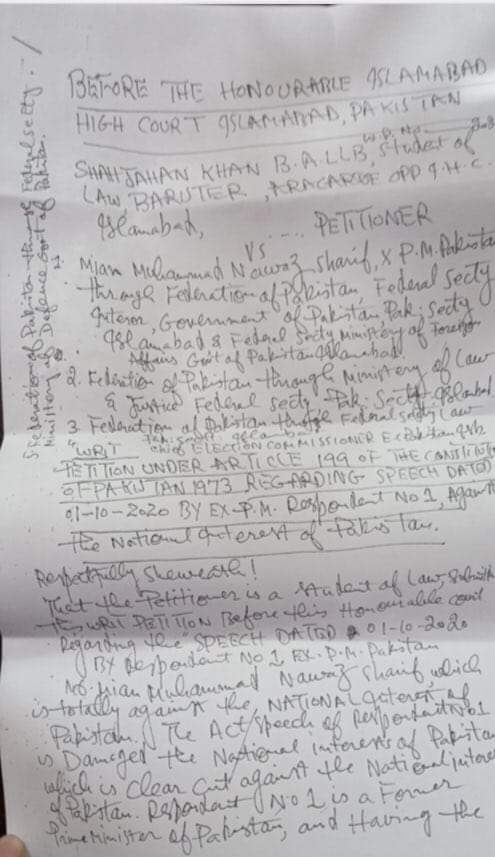 BEFORE THE HONOURABLE ISLAMABAD
HIGH COURT ISLAMABAD, PAKISTAN
W.P. No
SHAHJAHAN KHAN B.A.LLB, Student of
LAW, OPP I.H.C.
Islamabad,
.... PETITIONER
VS
Mian Muhammad Nawaz Sharif, X P.M. Pakistan
through Federation of Pakistan, Federal Secty
Interor, Government of Pakistan Pak; Secty
Islamabad & Federal Secty Ministery of Foreign
Affairs Govt of Pakistan Islamabad.
2. Federation of Pakistan through Ministery of Law
& Justice Federal Secty Pak: Sectt Islamabad
3 Federation of Pakistan through Federal Secty Law
4 chief ELECTION COMMISSIONER
5. Federation of Pakistan through Federal Secty.
Ministery of Defence Govt of Pakistan.
"WRIT
PETITION UNDER ARTICLE 199 OF THE CONSTITUTI
OF PAKISTAN 1973 REGARDING SPEECH DATED
01-10-2020 BY EX-P.M. Respondent No 1, Against
The National Interest of Pakistan.
Respectfully Sheweath!
That the Petitioner is a Student of Law, Submitt
WRIT PETITION Before this Honourable court
Regarding the SPEECH DATED 01-10-2020
BY Respondent No 1 EX. P.M. Pakistan
Mian Muhammad Nawaz Sharif, which
is totally against the NATIONAL Interest of
Pakistan. The Act/Speech of Respondent No 1
is Damaged the National interests of Pakistan
which is Clear Cut against the National Interes
of Pakistan. Respondent No 1 is a Former
Prime Minister of Pakistan, and Having the